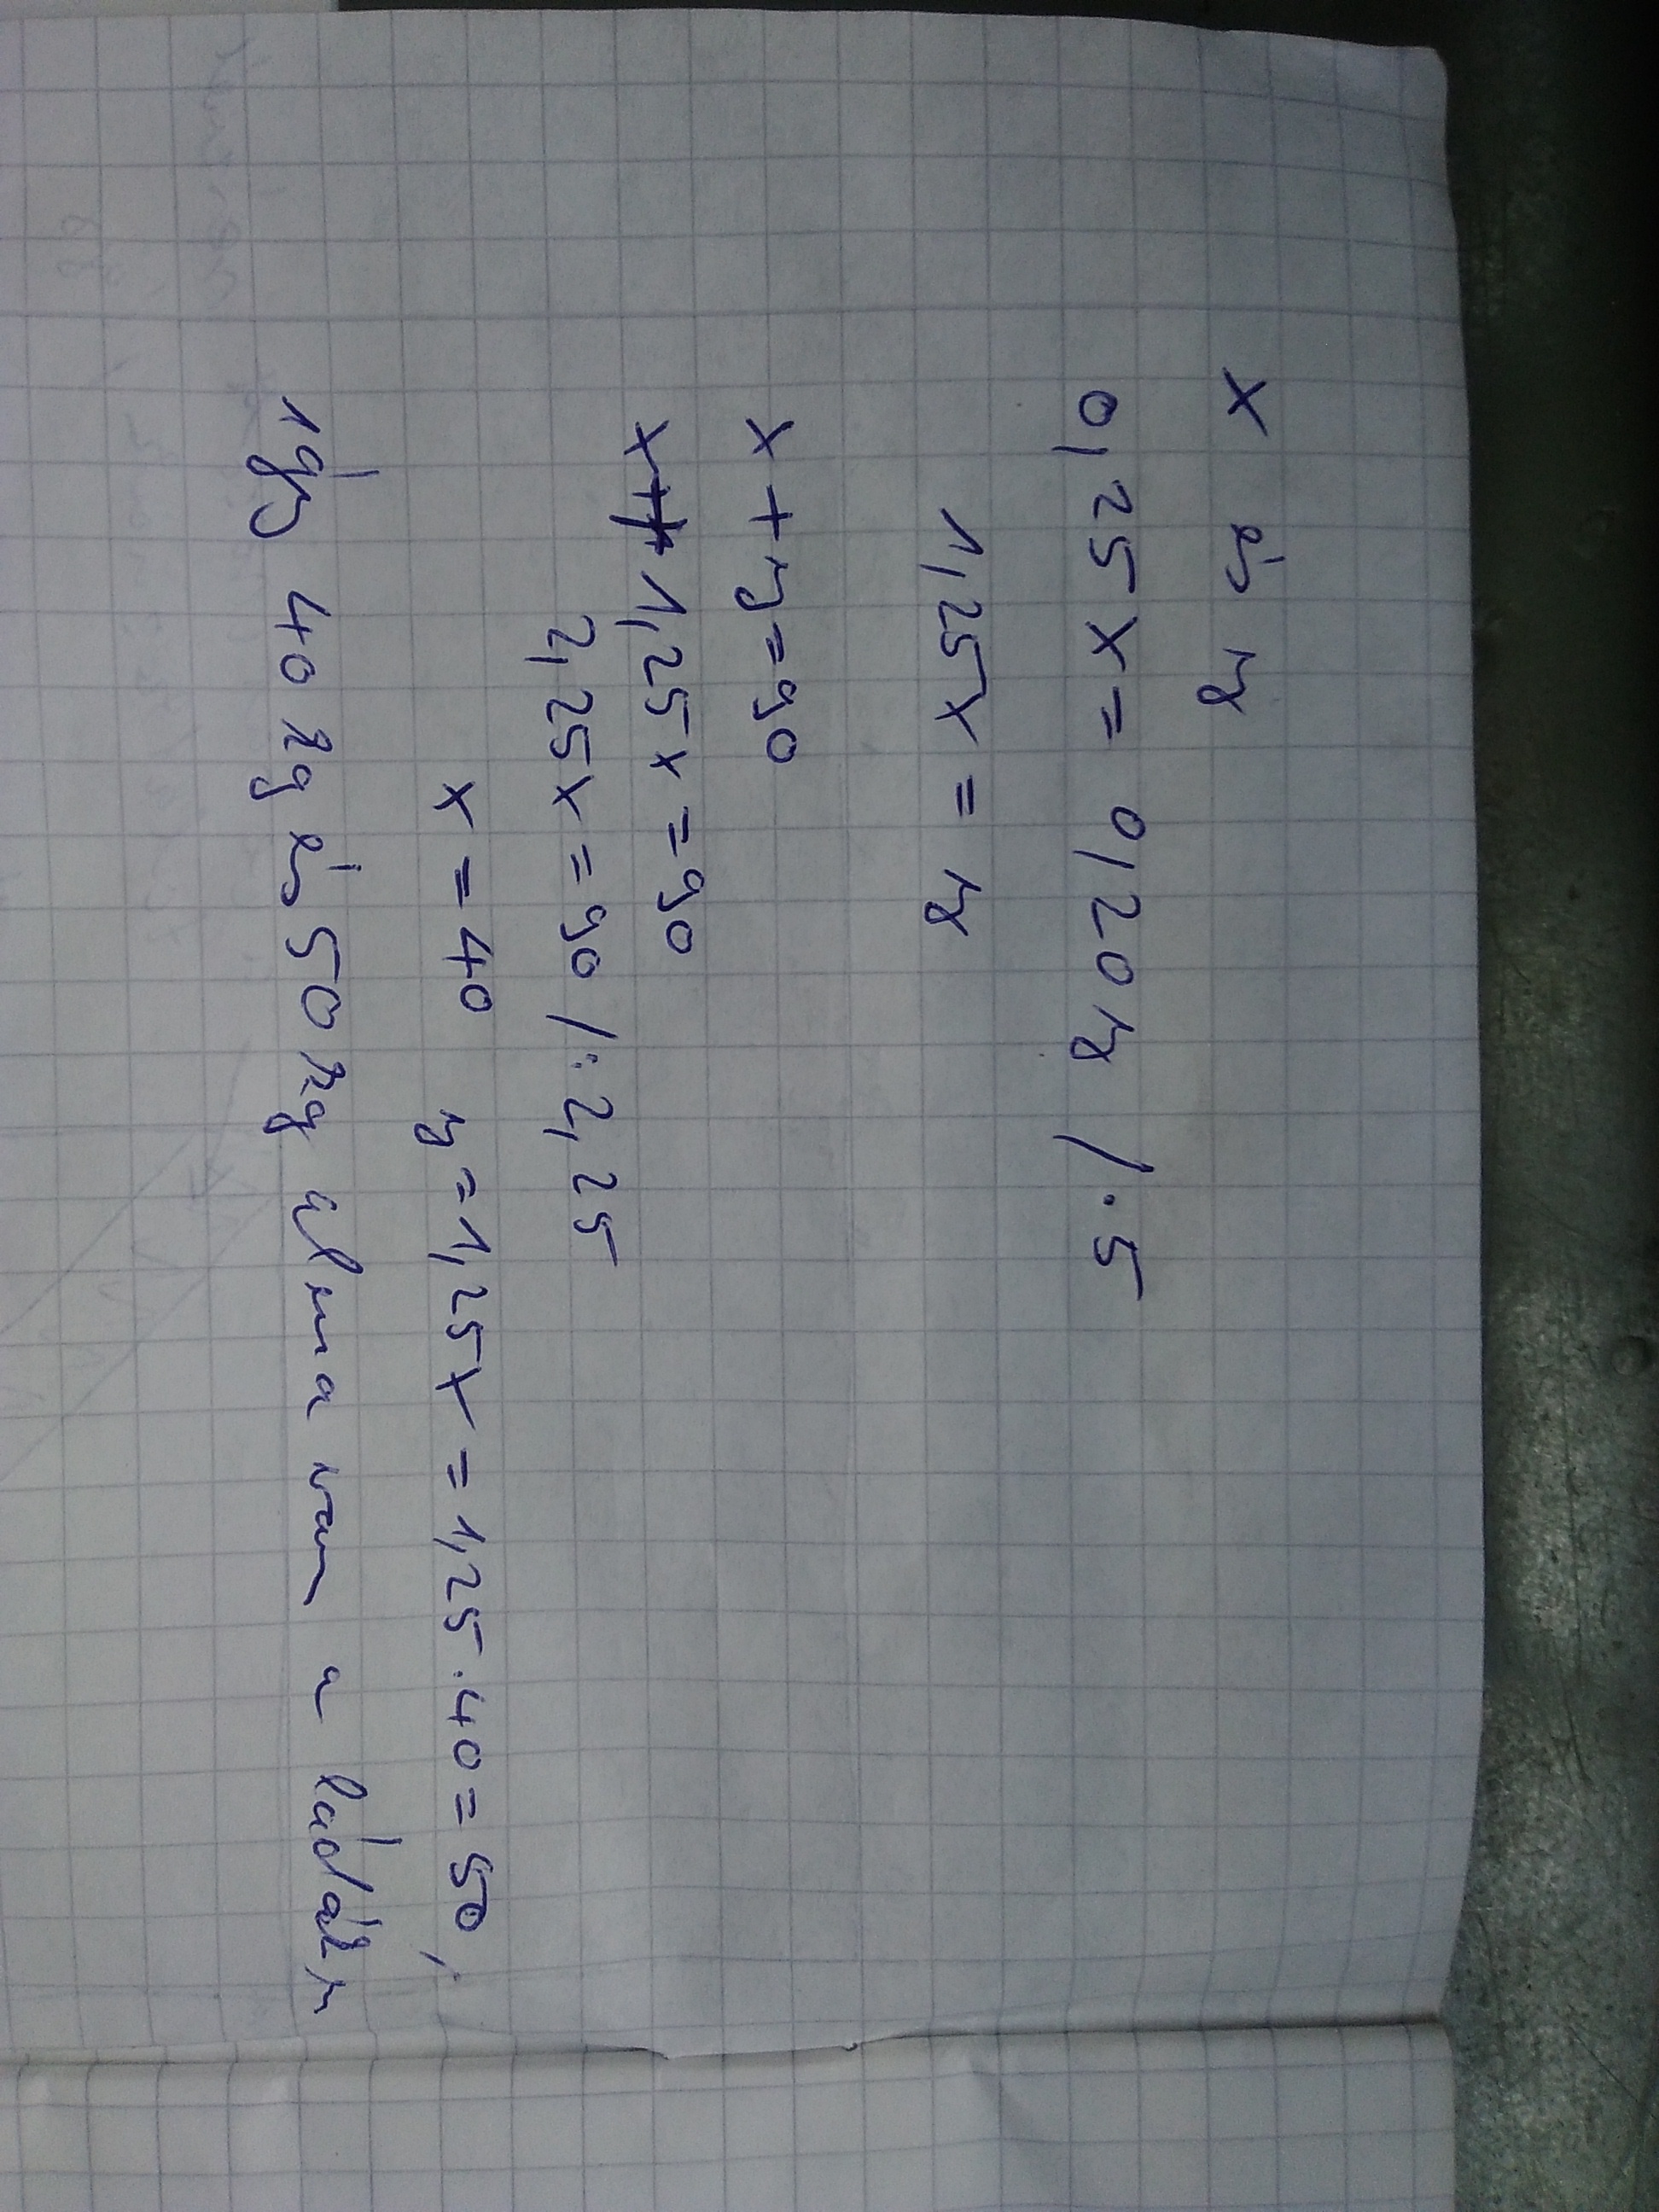 x és y
0,25x = 0,20y /·5
1,25x = y
x + y = 90
x + 1,25x = 90
2,25x = 90 /:2,25
x = 40 y = 1,25x = 1,25·40 = 50,
Így 40 kg és 50 kg alma van a ládákn